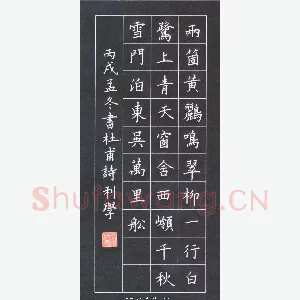 兩箇黃鸝鳴翠柳一行白
鷺上青天窗含西嶺千秋
雪門泊東吳萬里船
丙戌孟冬書杜甫詩利學
Shufawang.CN